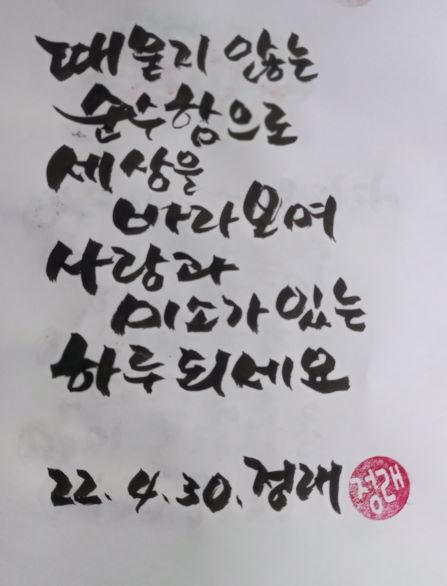 때묻지 않는
순수함으로
세상을
바라보며
사랑과
미소가 있는
하루 되세요
22. 4. 30. 정래
정래